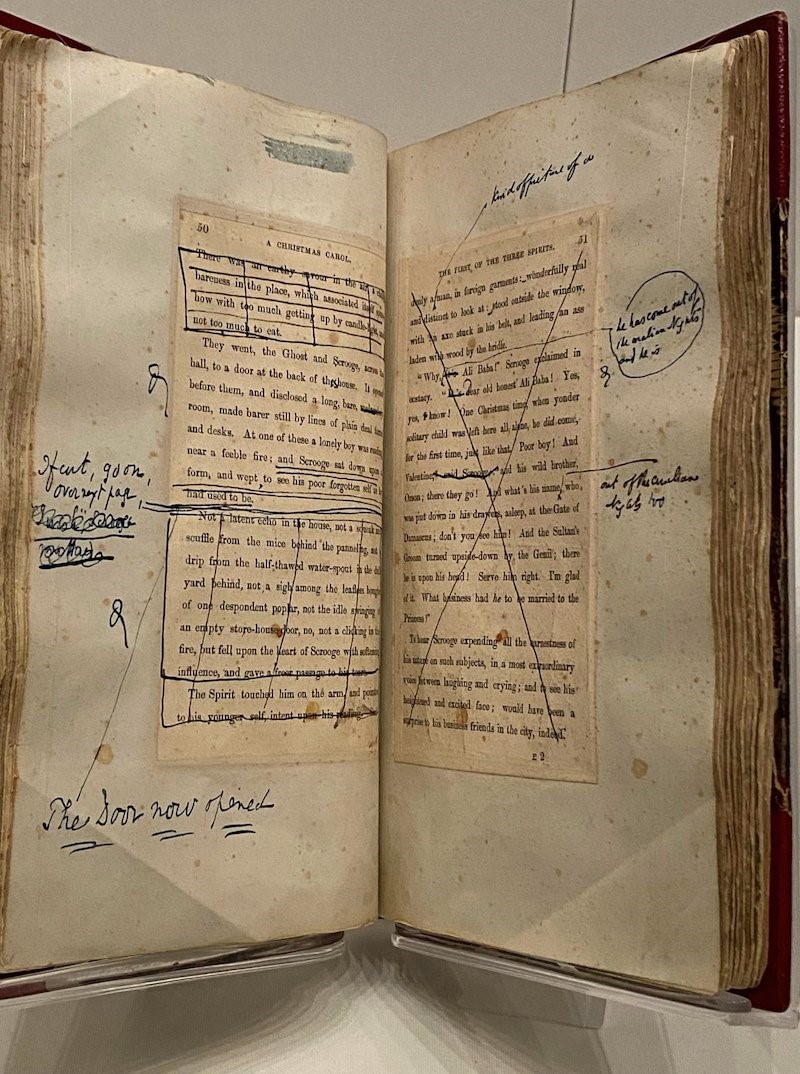 50
A CHRISTMAS CAROL.
There was an earthy savour in the air, a
bareness in the place, which associated itself
how with too much getting up by candle-light, and
not too much to eat.
They went, the Ghost and Scrooge, across
hall, to a door at the back of the house. It opened
before them, and disclosed a long, bare,
room, made barer still by lines of plain deal forms
and desks. At one of these a lonely boy was reading
near a feeble fire; and Scrooge sat down upon a
form, and wept to see his poor forgotten self as he
had used to be.
Not a latent echo in the house, not a squeak and
scuffle from the mice behind the pannelling, not a
drip from the half-thawed water-spout in the dull
yard behind, not a sigh among the leafless boughs
of one despondent poplar, not the idle swinging of
an empty store-house door, no, not a clicking in the
fire, but fell upon the heart of Scrooge with softening
influence, and gave a freer passage to his tears.
The Spirit touched him on the arm, and pointed
to his younger self, intent upon his reading.
If cut, go on,
over next page,
The Door now opened
kind of picture of a
THE FIRST OF THE THREE SPIRITS.
51
denly a man, in foreign garments: wonderfully real
and distinct to look at: stood outside the window,
with an axe stuck in his belt, and leading an ass
laden with wood by the bridle.
"Why, Ali Baba!" Scrooge exclaimed in
ecstasy. "It's dear old honest Ali Baba! Yes,
yes, I know! One Christmas time, when yonder
solitary child was left here all alone, he did come,
for the first time, just like that. Poor boy! And
Valentine," said Scrooge, "and his wild brother,
Orson; there they go! And what's his name, who
was put down in his drawers, asleep, at the Gate of
Damascus; don't you see him! And the Sultan's
Groom turned upside-down by the Genii; there
he is upon his head! Serve him right. I'm glad
of it. What business had he to be married to the
Princess!"
To hear Scrooge expending all the earnestness of
his nature on such subjects, in a most extraordinary
voice between laughing and crying; and to see his
heightened and excited face; would have been a
surprise to his business friends in the city, indeed.
E 2
he has come out of
the Arabian Nights
and he is
out of the Arabian
Nights too